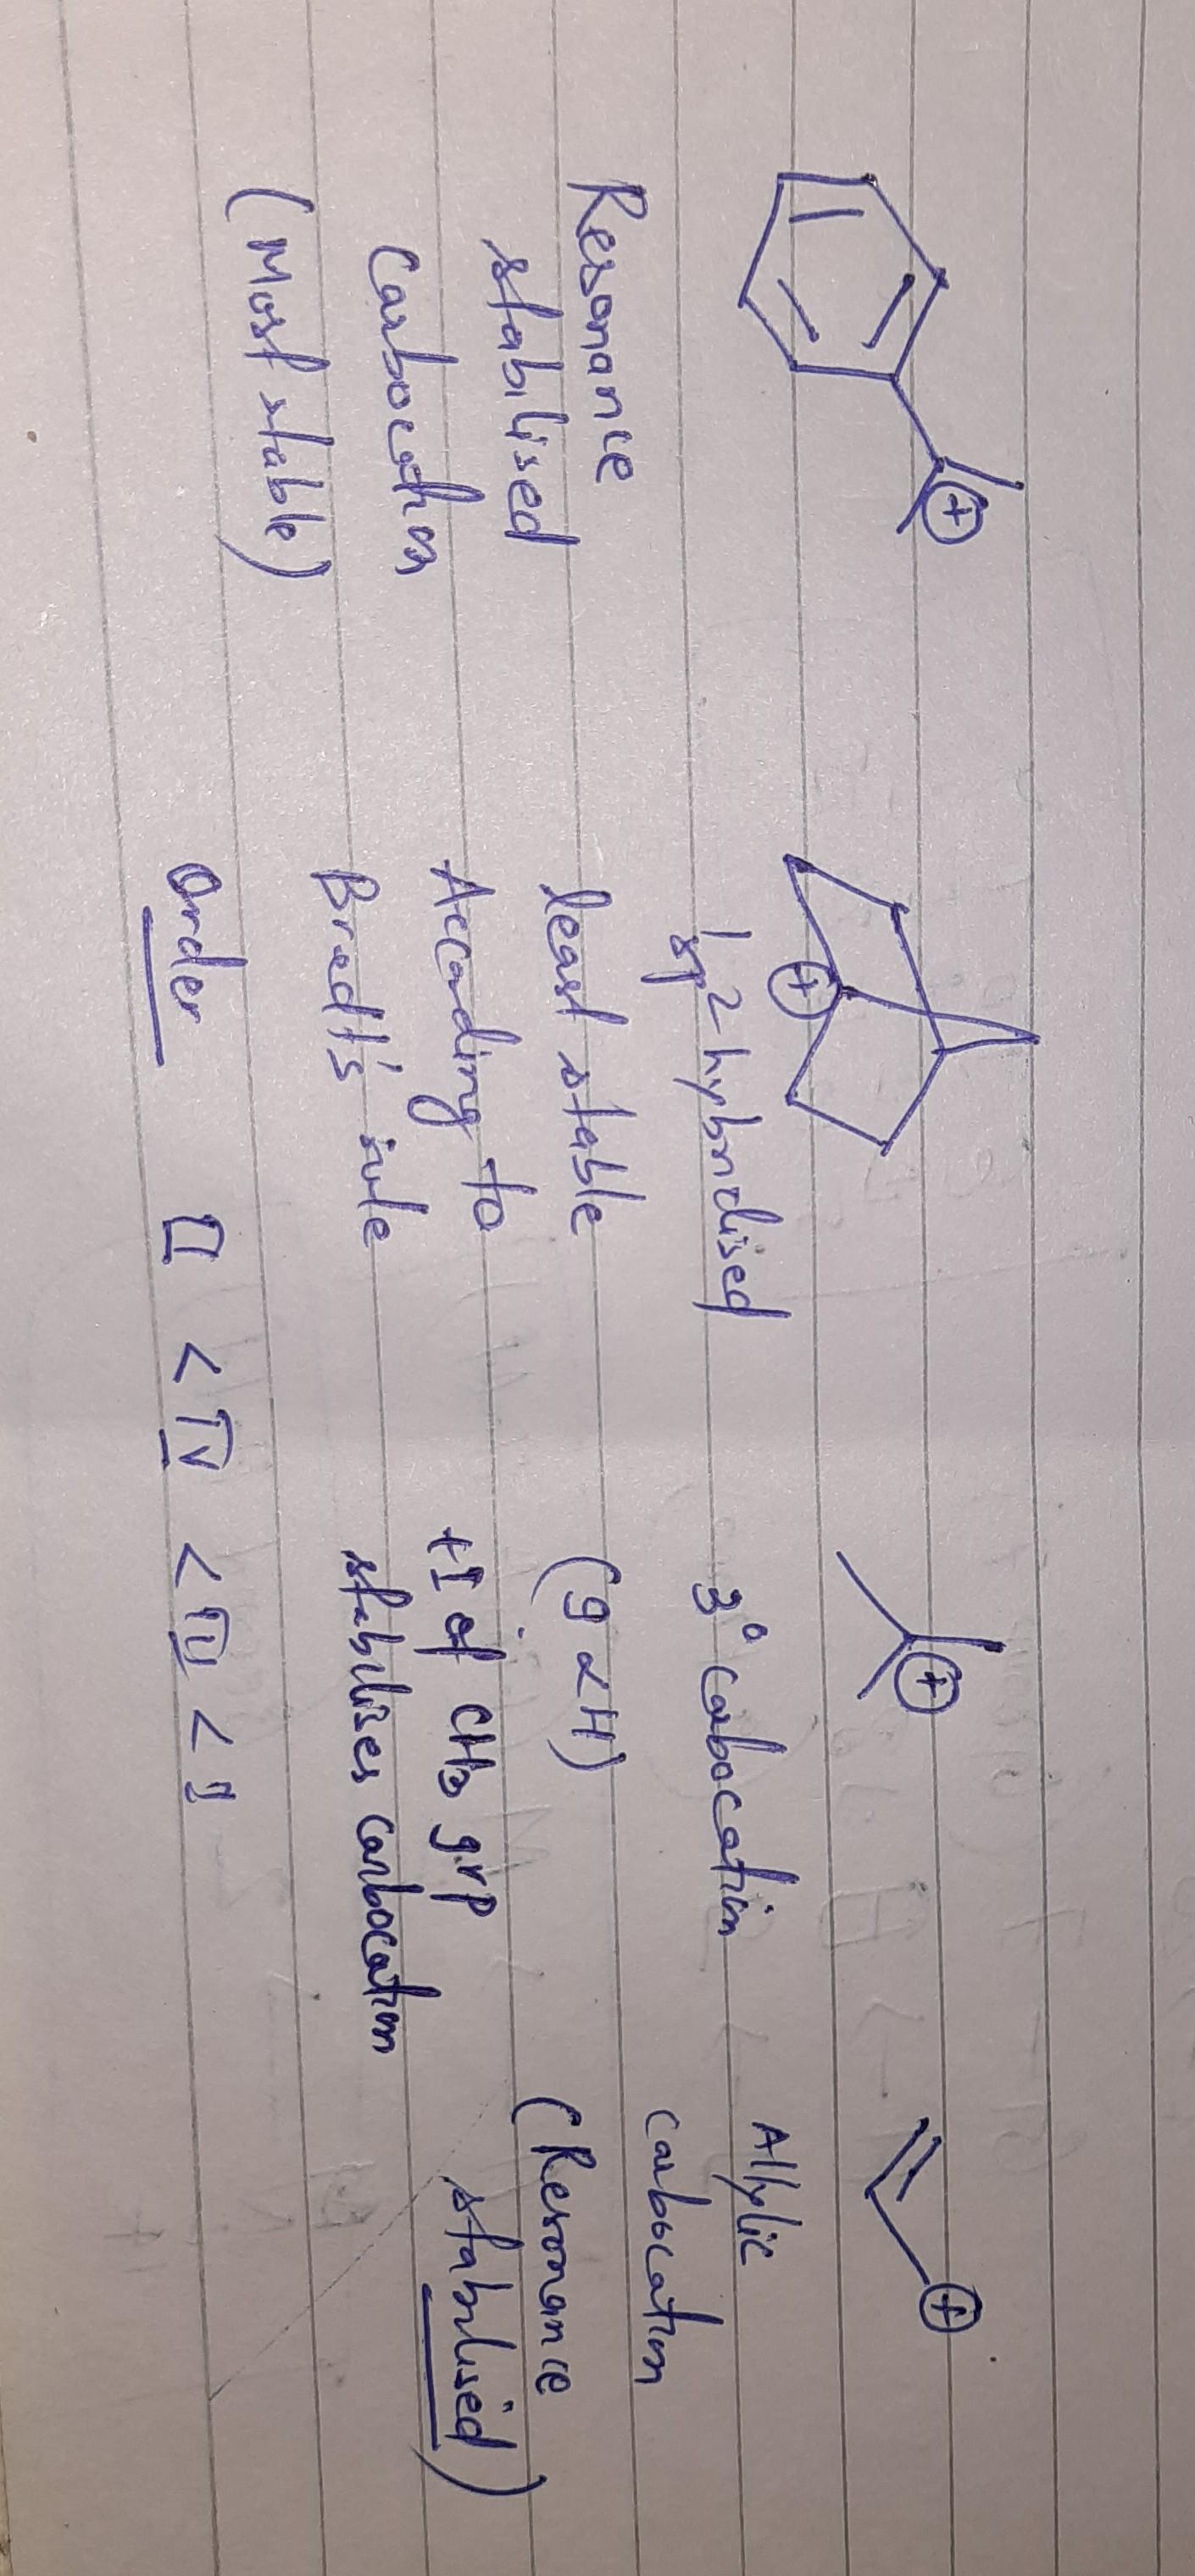 Resonance
stabilised
Carbocation
(Most stable)
sp²-hybridised
least stable
According to
Bredt's rule
3° carbocation
(9 αH)
+I of CH3 grp
stabilises carbocation
Allylic
carbocation
(Resonance
stabilised)
Order II < IV < III < I